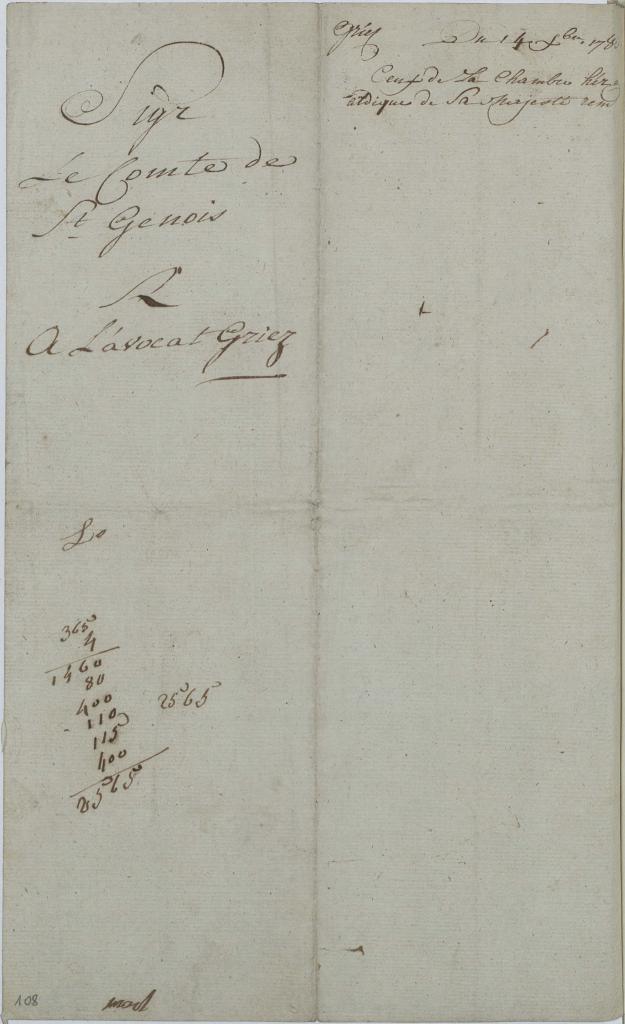 Sigr
Le Comte de
St Genois
A
A L'avocat Griez
Lo
365
4
1460
80
400
110
115
400
2565
2565
108
Griez
Du 14
Ceux de La Chambre héra
aldique de Sa Majesté